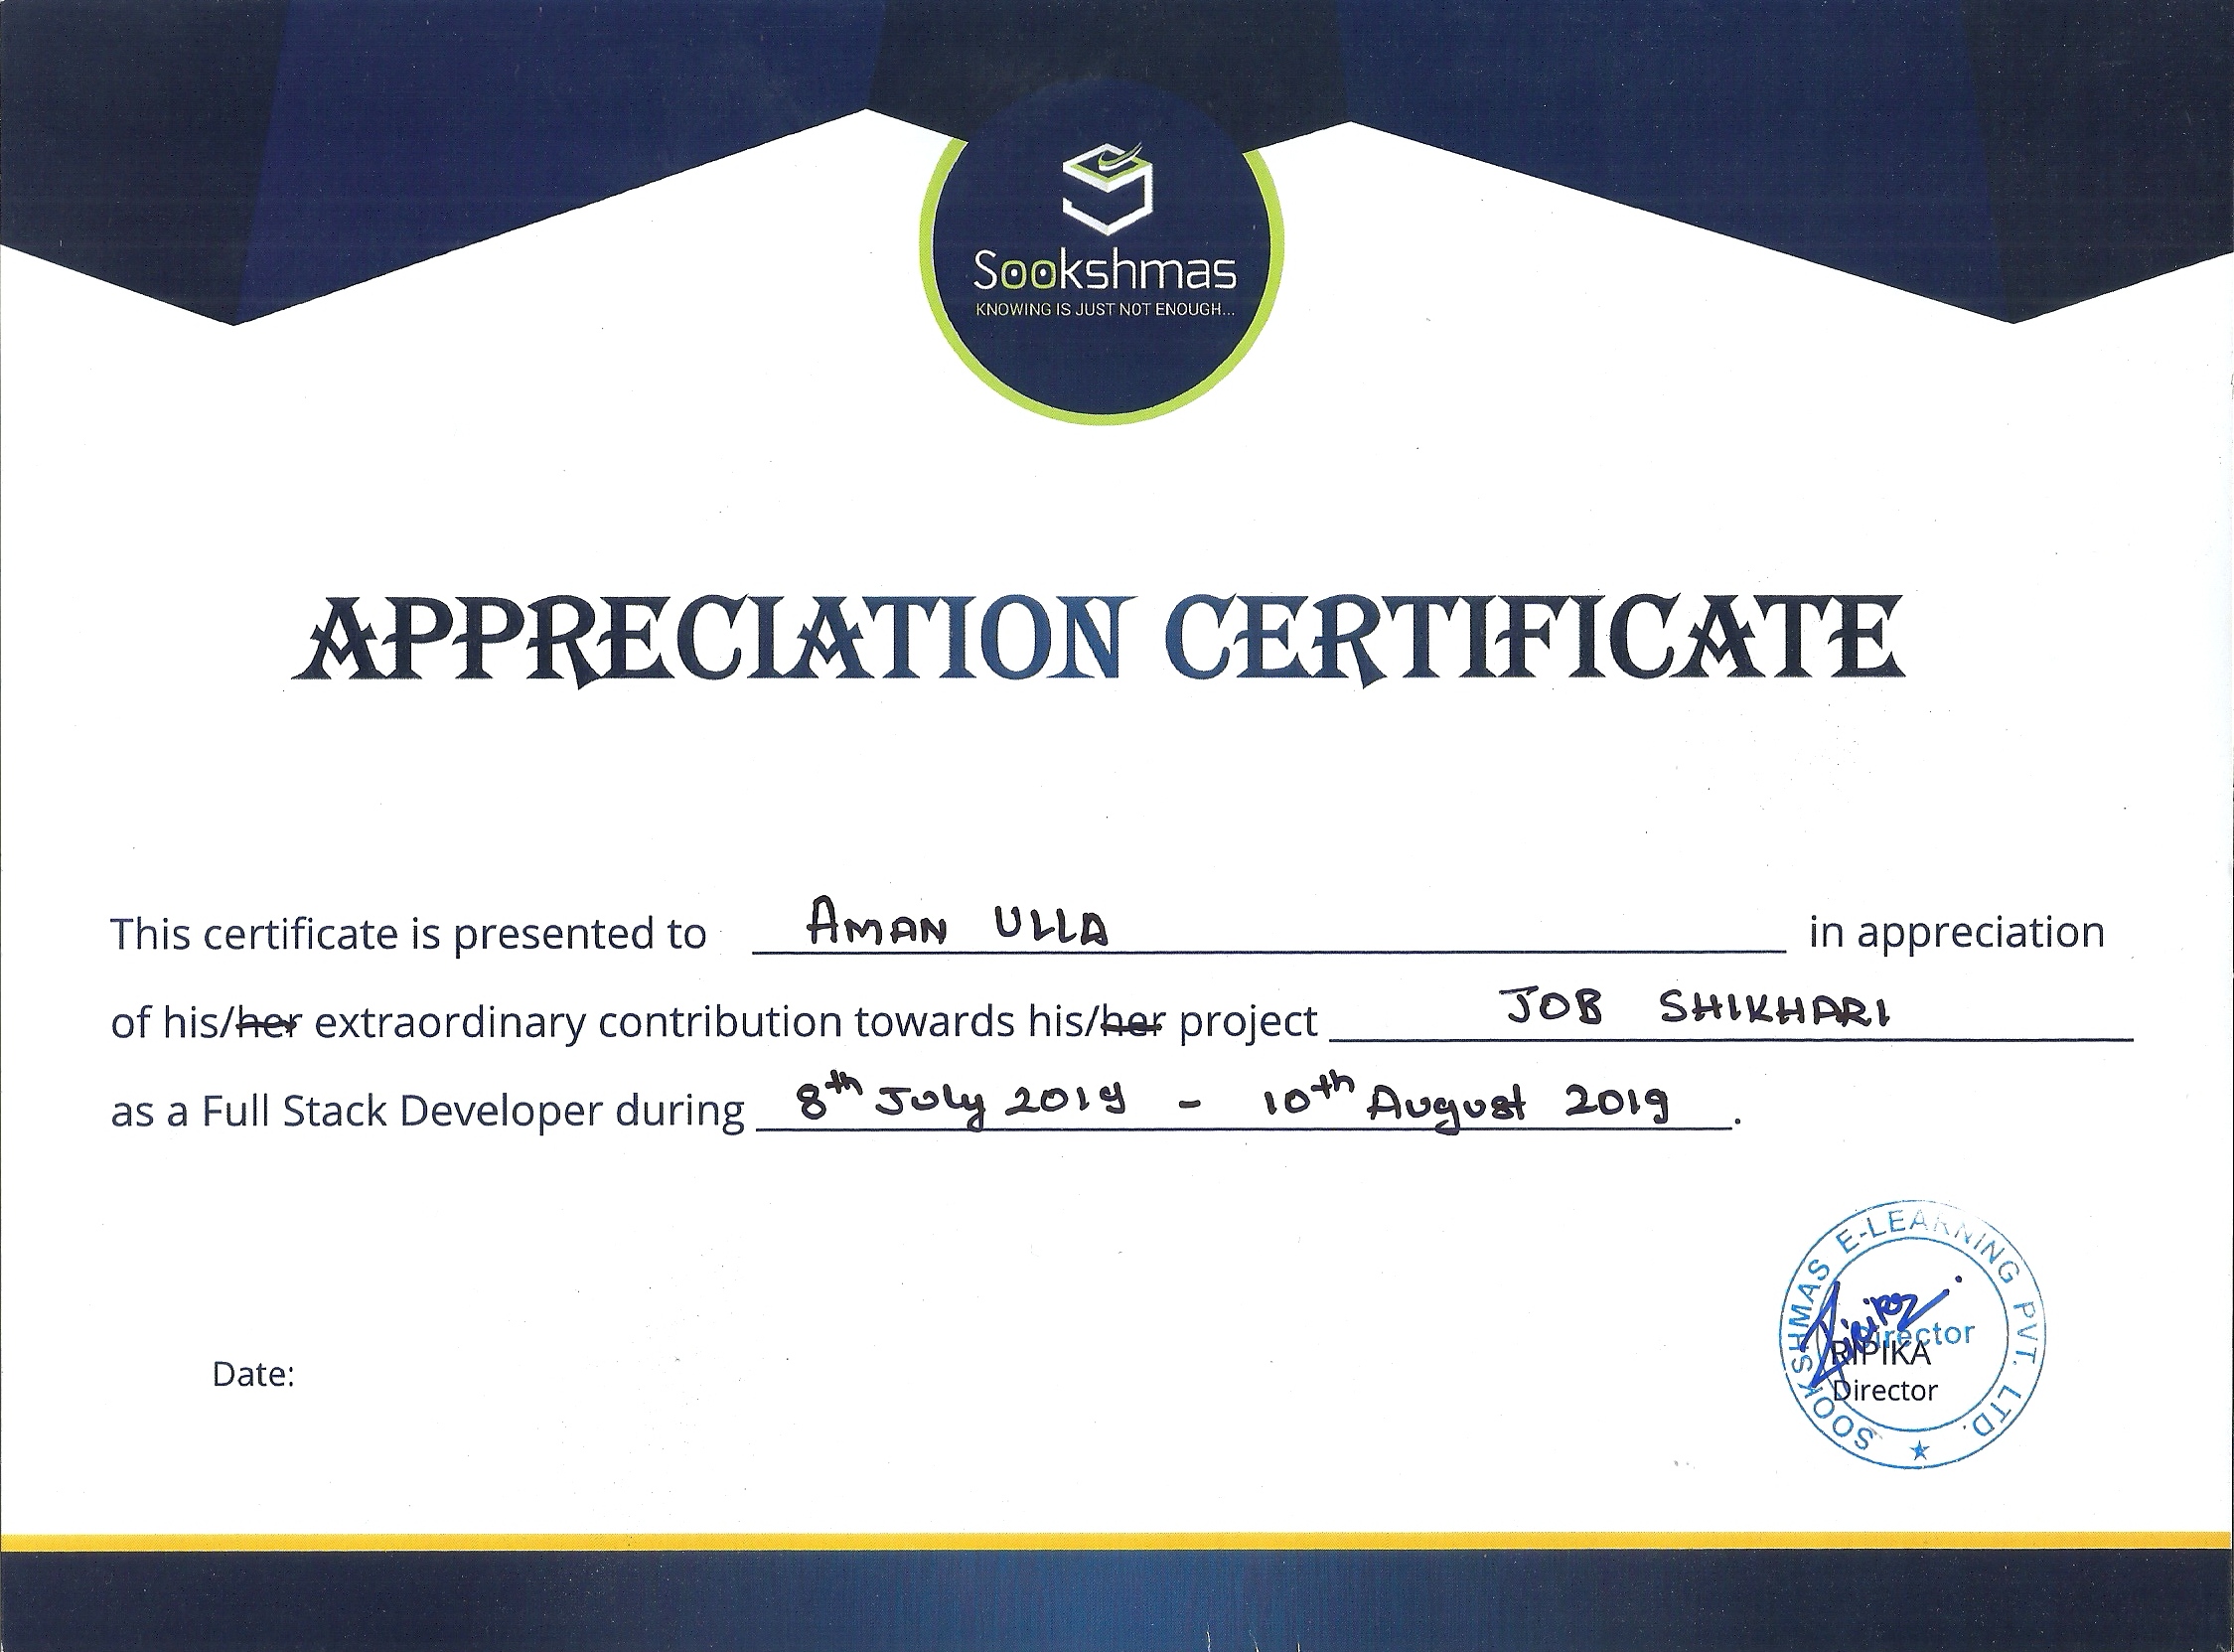 Sookshmas
KNOWING IS JUST NOT ENOUGH...
APPRECIATION CERTIFICATE
This certificate is presented to AMAN ULLA in appreciation
of his/her extraordinary contribution towards his/her project JOB SHIKHARI
as a Full Stack Developer during 8th July 2019 - 10th August 2019.
SOOKSHMAS E-LEARNING PVT. LTD.
Director
RIPIKA
Director
Date: